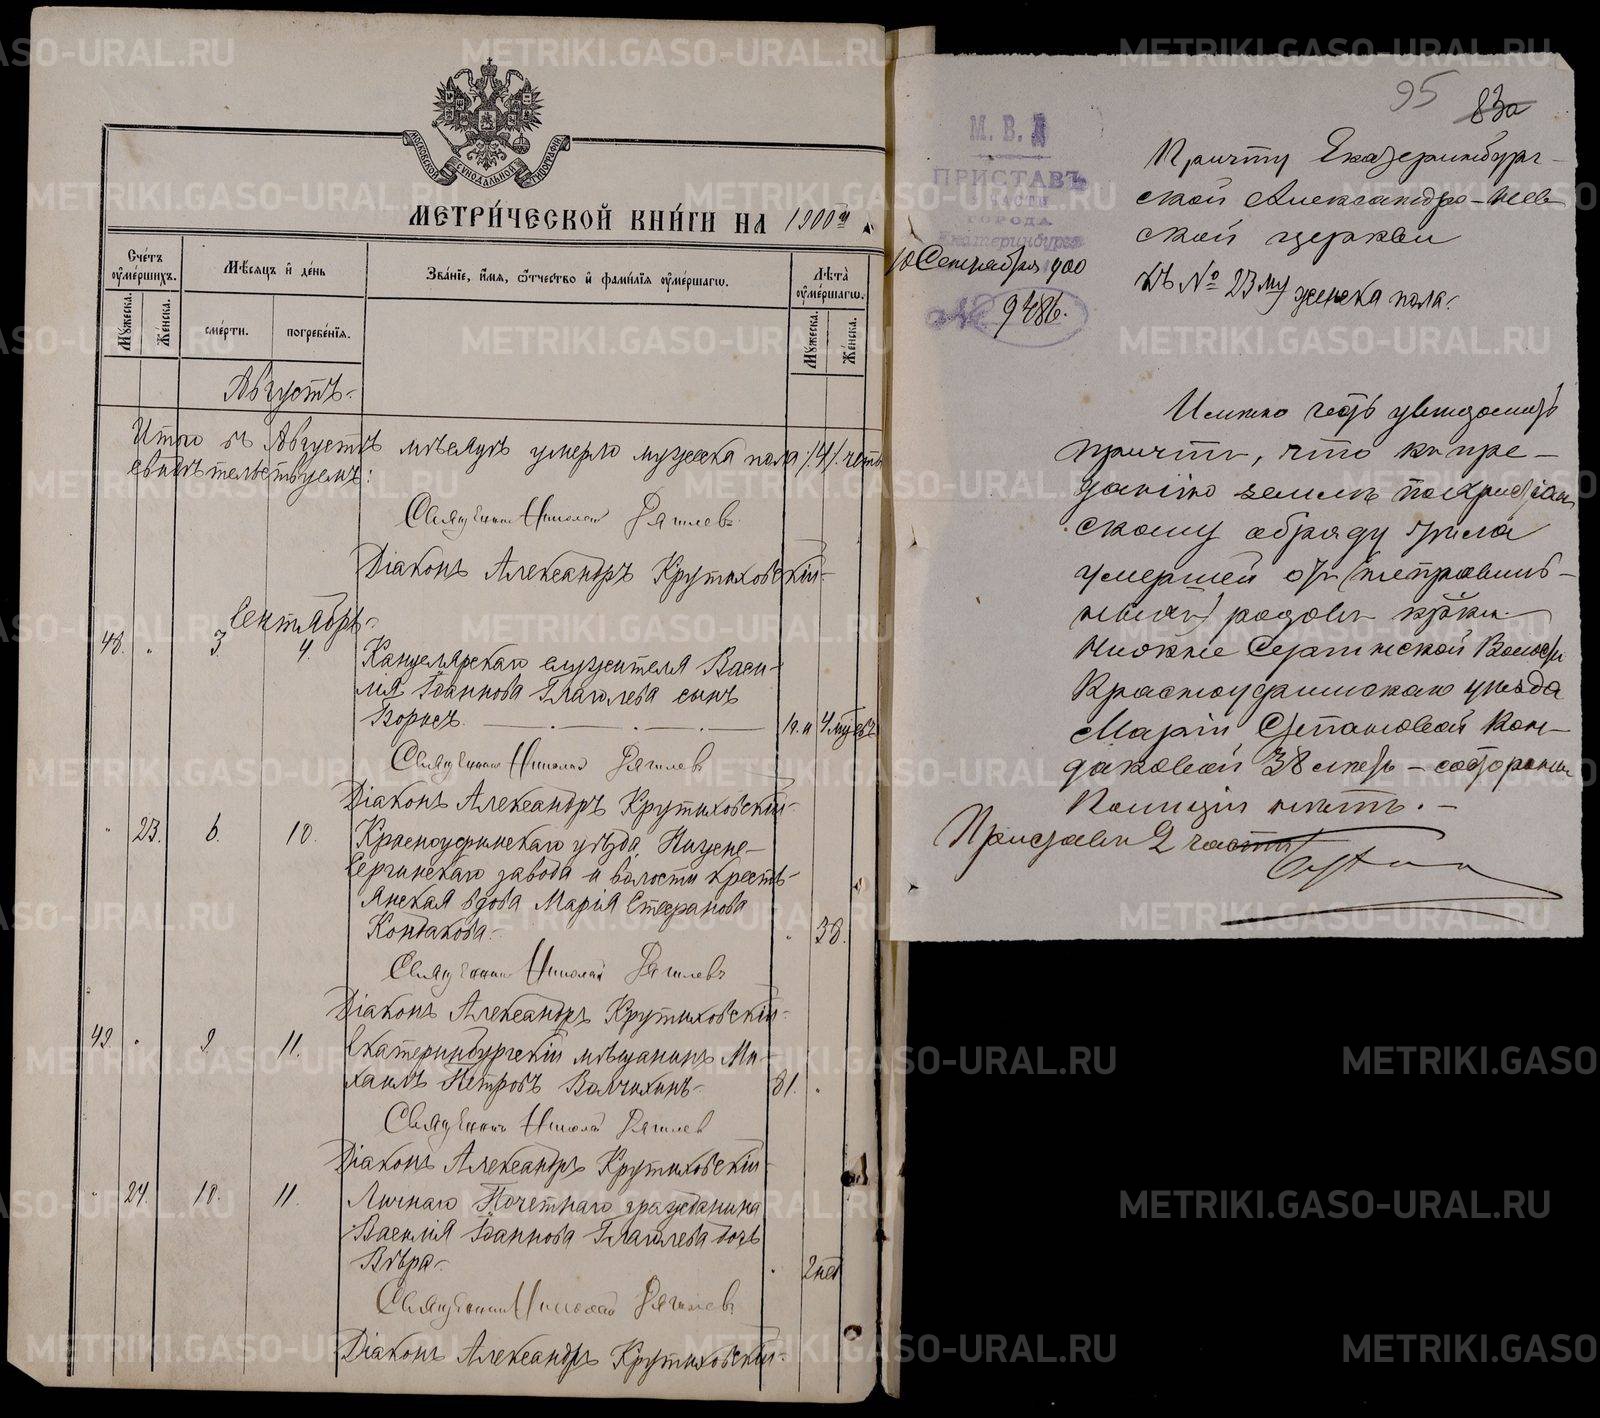 МОСКОВСКОЙ СѴНОДАЛЬНОЙ ТИПОГРАФІИ
МЕТРИ́ЧЕСКОЙ КНИ́ГИ НА 1900й
Сче́тъ ᲂу҆ме́ршихъ.
Мѣ́сѧцъ и҆ де́нь
Зва́нїе, и҆́мѧ, ѻ҆́тчество и҆ фамі́лїѧ ᲂу҆ме́ршагѡ.
Лѣ́та ᲂу҆ме́ршагѡ.
Мꙋ́жеска.
Же́нска.
сме́рти.
погребе́нїѧ.
Мꙋ́жеска.
Же́нска.
Августъ.
Итого въ Августѣ мѣсяцѣ умерло мужеска пола /4/. четы
свидѣтельствуемъ:
Священникъ Николай
Діаконъ Александръ Крутиховскій
Сентябрь.
48. " 3. 4. Канцелярскаго служителя Васи-
лія Іоаннова Глаголева сынъ
Борисъ. 1 г. и 4 мѣсяцъ
Священникъ Николай
Діаконъ Александръ Крутиховскій
" 23. 6. 10. Красноуфимскаго уѣзда, Нижне-
Сергинскаго завода и волости крестъ-
янская вдова Марія Стефанова
Кондакова. " 38.
Священникъ Николай
Діаконъ Александръ Крутиховскій
49. " 9. 11. Екатеринбургскій мѣщанинъ Ми-
хаилъ Петровъ Волчихинъ. 81. "
Священникъ Николай
Діаконъ Александръ Крутиховскій
" 24. 10. 11. Личнаго Почетнаго гражданина
Василія Іоаннова Глаголева дочь
Вѣра. " 2 нед
Священникъ Николай
Діаконъ Александръ Крутиховскій
95 83а
М. В. Д.
ПРИСТАВЪ
2 ЧАСТИ
ГОРОДА
Екатеринбурга
10 Сентября 1900
№ 9486.
Причту Екатеринбург-
ской Александро-Нев-
ской церкви
Къ № 23му женска пола.
Имѣю честь увѣдомить
причтъ, что къ пре-
данію землѣ по христіан
скому обряду тѣла
умершей отъ (неправиль-
ныхъ) родовъ кр-ки
Нижне Сергинской Волости
Красноуфимскаго уѣзда
Маріи Степановой Кон-
даковой 38 лѣтъ - со стороны
Полиціи нѣтъ. -
Приставъ 2 части
METRIKI.GASO-URAL.RU